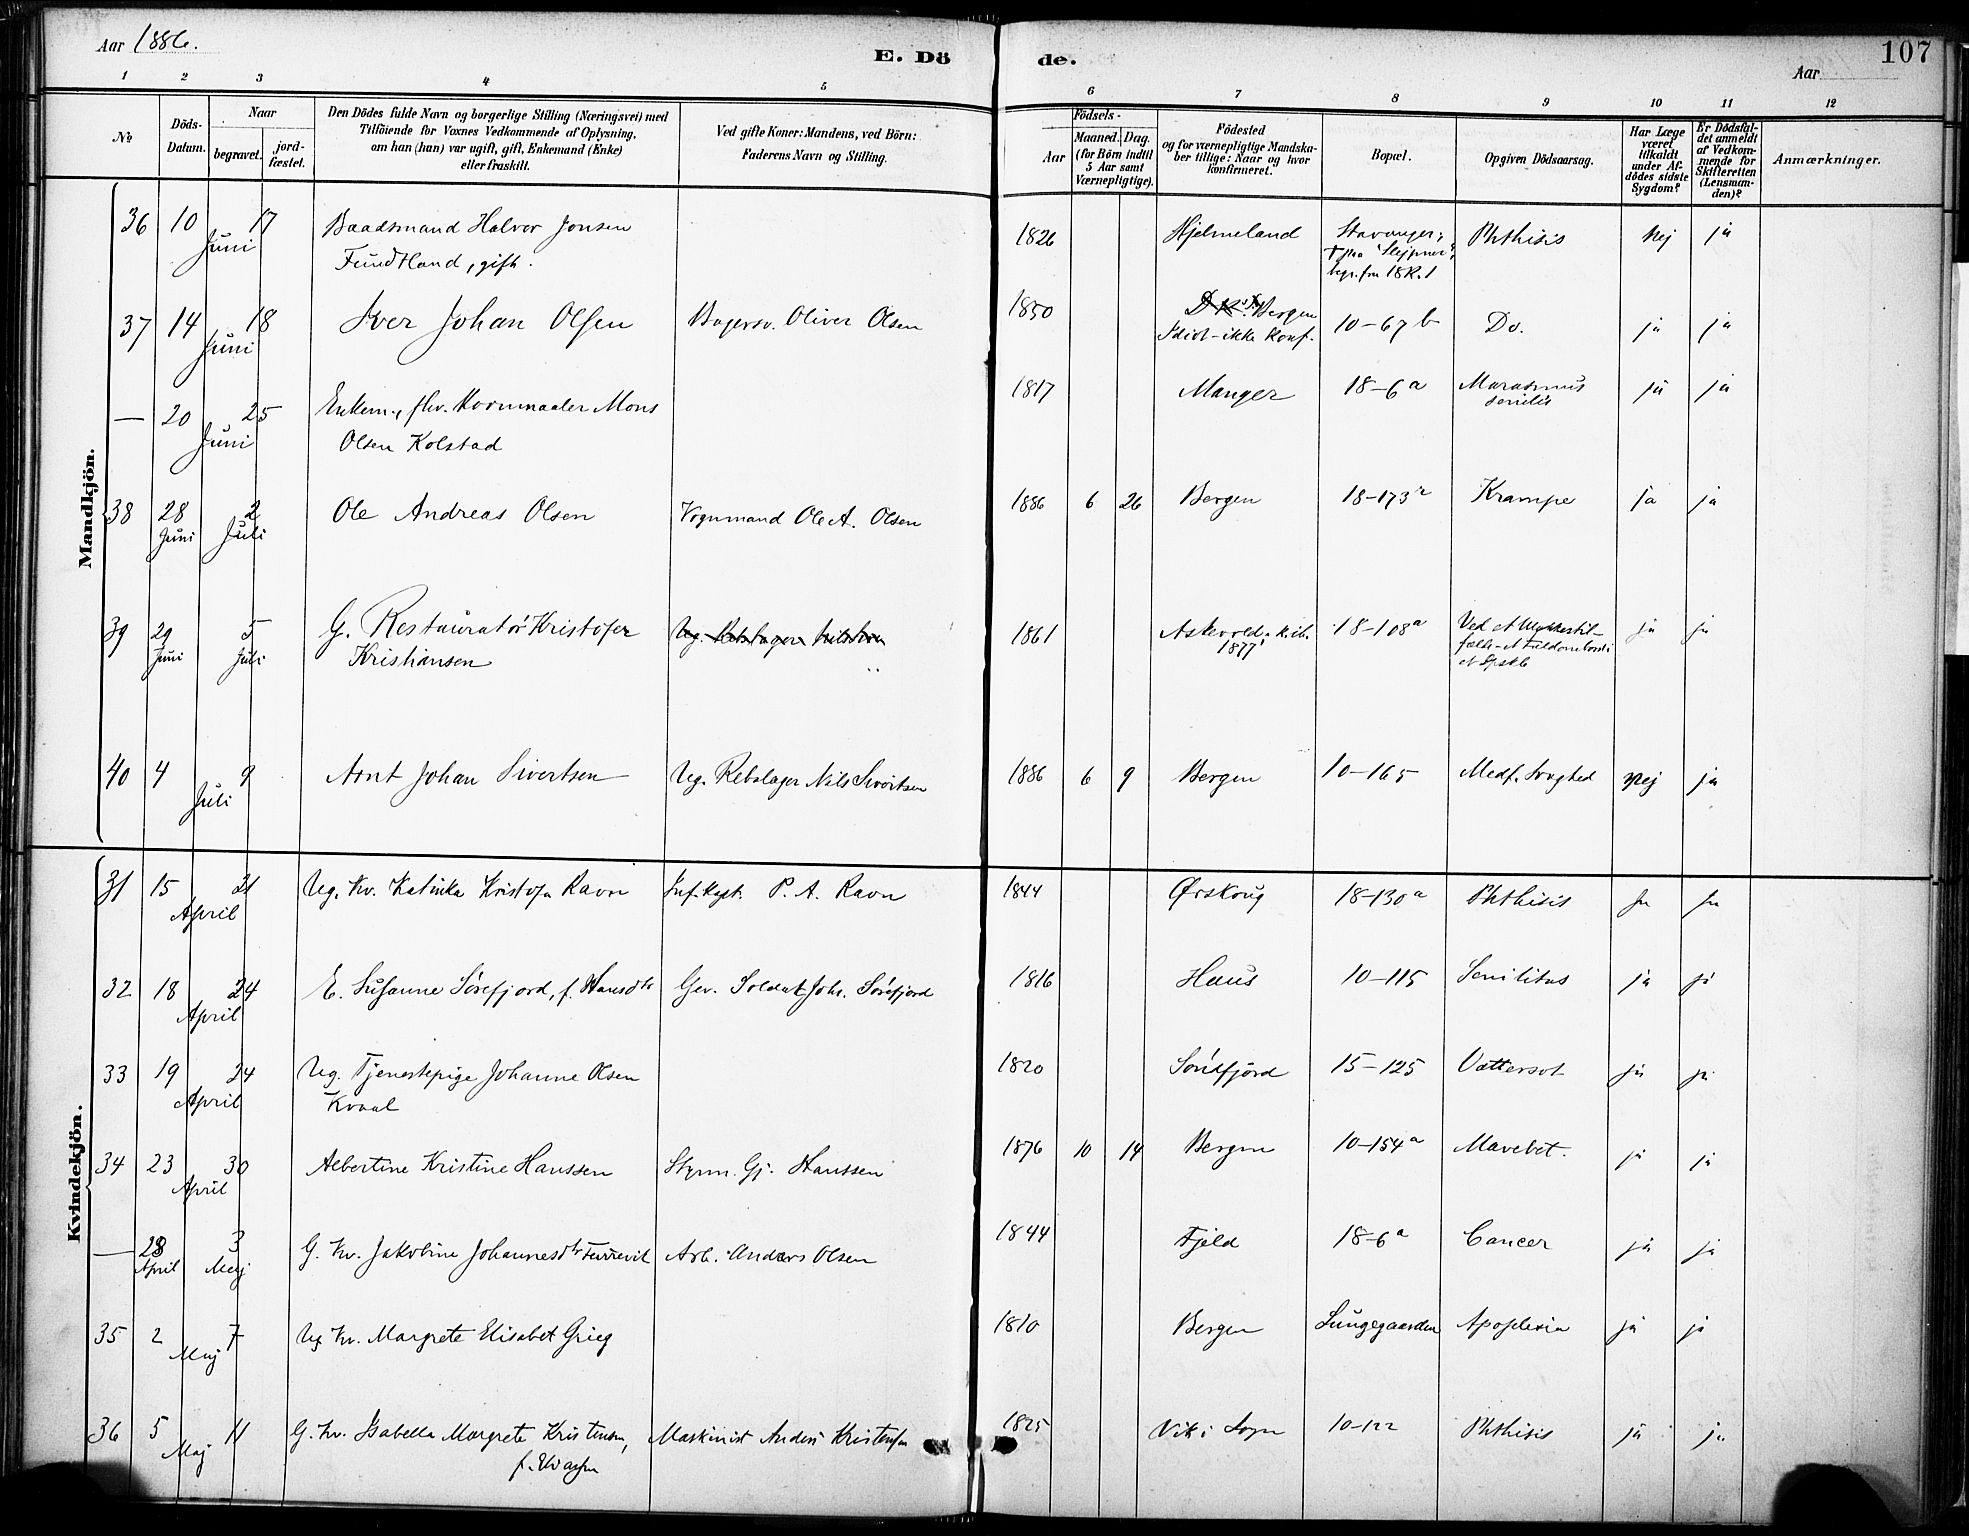 Aar 1886.
E. Dö
de.
Aar
107
1 2 3 4 5 6 7 8 9 10 11 12
№
Döds-Datum.
Naar
begravet.
jord-fæstet.
Den Dödes fulde Navn og borgerlige Stilling (Næringsvei) med
Tilföiende for Voxnes Vedkommende af Oplysning,
om han (hun) var ugift, gift, Enkemand (Enke)
eller fraskilt.
Ved gifte Koner: Mandens, ved Börn:
Faderens Navn og Stilling.
Födsels-
Aar
Maaned. Dag.
(for Börn indtil
5 Aar samt
Værnepligtige).
Födested
og for værnepligtige Mandska-
ber tillige: Naar og hvor
konfirmeret.
Bopæl.
Opgiven Dödsaarsag.
Har Læge
været
tilkaldt
under Af-
dödes sidste
Sygdom?
Er Dödsfal-
det anmeldt
af Vedkom-
mende for
Skifteretten
(Lensman-
den)?
Anmærkninger.
Mandkjön.
36 10 17 Juni Baadsmand Halvor Jonsen 1826 Hjelmeland Stavanger; Phthisis Nej ja
Fundtland, gift.
begr. fra 18R.1
37 14 18 Juni Iver Johan Olsen Bagersv. Oliver Olsen 1850 Bergen 10-67 b Do. ja ja
Idiot - ikke konf.
— 20 25 Juni Enkem., fhv. Kornmaaler Mons 1817 Manger 18-6 a Marasmus ja ja
Olsen Kolstad senilis
38 28 Juni 2 Juli Ole Andreas Olsen Vognmand Ole A. Olsen 1886 6 26 Bergen 18-173 Krampe ja ja
39 29 Juni 5 Juli G. Restauratör Kristofer 1861 Askevold 18-108 a Ved et Ulykkestil- ja ja
Kristiansen 1877
40 4 9 Juli Arnt Johan Sivertsen Ug. Rebslager Nils Sivertsen 1886 6 9 Bergen 10-165 Medf. Svaghed Nej ja
Kvindekjön.
31 15 21 April Ug. Kv. Katinka Kristofa Ravn Inf. kapt. P. A. Ravn 1844 Ørskoug 18-130 a Phthisis Ja Ja
32 18 24 April E. Susanne Sörefjord, f. Hansdtr Gev. Soldat Johs. Sörefjord 1816 Haus 10-115 Senilitas ja ja
33 19 24 April Ug. Tjenestepige Johanne Olsen 1820 Söndfjord 15-125 Vattersot ja ja
Kvaal
34 23 30 April Albertine Kristine Hanssen Styrm. Gj. Hanssen 1876 10 14 Bergen 10-154 a Mavebet. ja ja
— 28 April 3 Maj G. Kv. Jakobine Johannesdtr Arb. Anders Olsen 1844 Fjeld 18-6 a Cancer ja ja
35 2 7 Maj Ug Kv. Margrete Elisabet Grieg 1810 Bergen Lungegaarden Apoplexia ja ja
36 5 11 Maj G. Kv. Isabella Margrete Kristensen, Maskinist Anders Kristensen 1825 Vik i Sogn 10-122 Phthisis ja ja